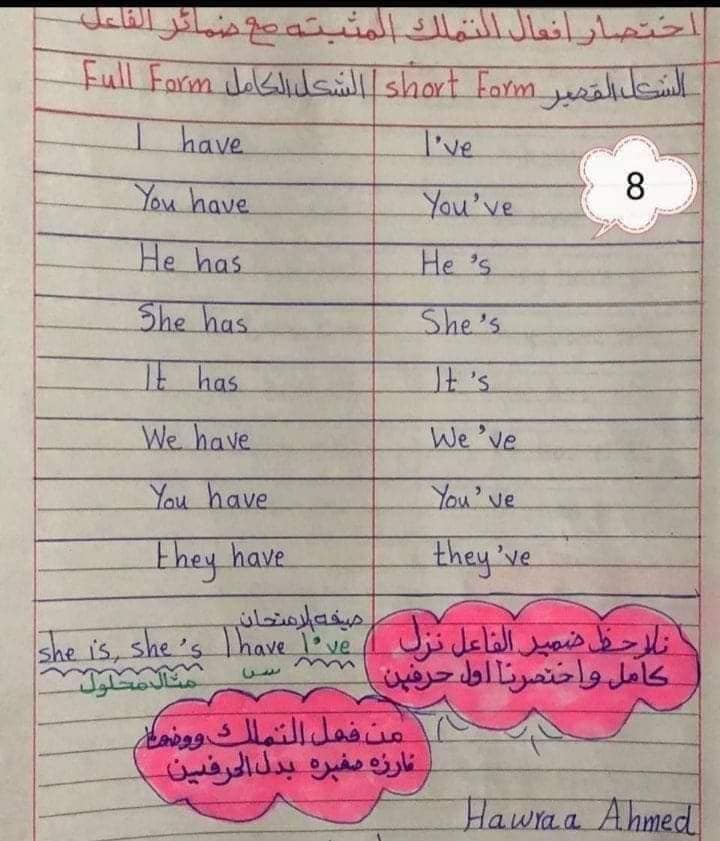 اختصار افعال التملك المثبته مع ضمائر الفاعل
Full Form الشكل الكامل | short Form الشكل القصير
I have I've
8
You have You've
He has He 's
She has She's
It has It 's
We have We 've
You have You've
they have they 've
صيغه الامتحان
she is, she's I have I've
مثال محلول س
نلاحظ ضمير الفاعل نزل
كامل واختصرنا اول حرفين
من فعل التملك ووضعنا
فارزه صغيره بدل الحرفين
Hawraa Ahmed